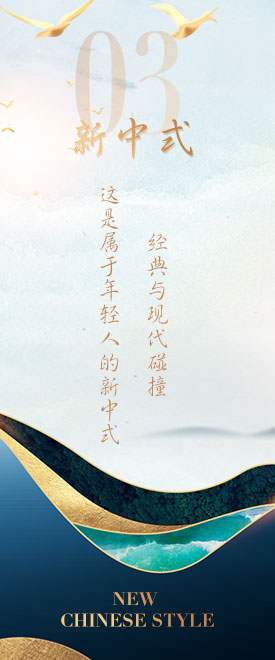 03
新中式
经典与现代碰撞
这是属于年轻人的新中式
NEW
CHINESE STYLE